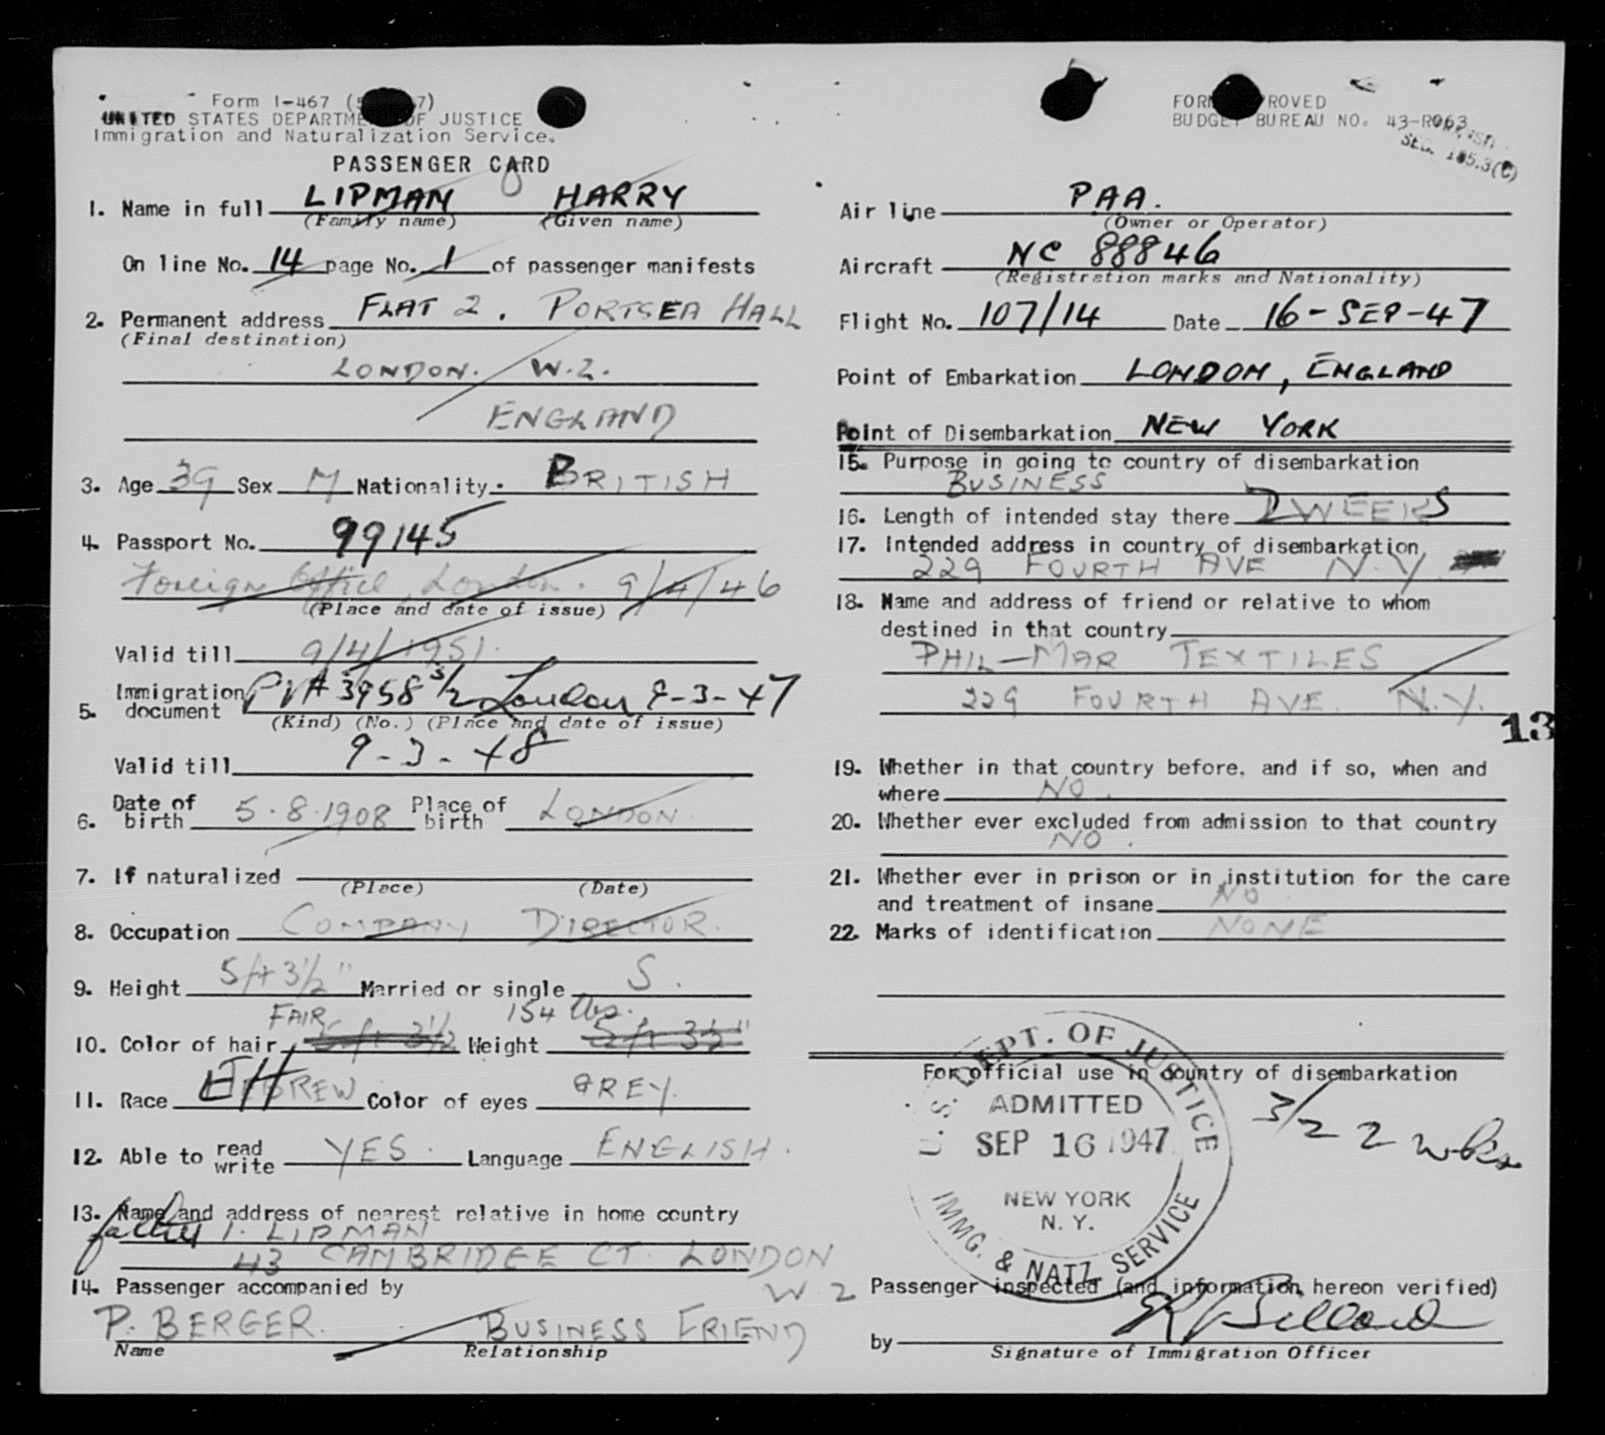 Form I-467 (
UNITED STATES DEPARTMENT OF JUSTICE
Immigration and Naturalization Service.
PASSENGER CARD
1. Name in full LIPMAN HARRY
(Family name) (Given name)
On line No. 14 page No. 1 of passenger manifests
2. Permanent address FLAT 2. PORTSEA HALL
(Final destination)
LONDON. W.2.
ENGLAND
3. Age 39 Sex M Nationality BRITISH
4. Passport No. 99145
Foreign Office, London. 9/4/46
(Place and date of issue)
Valid till 9/4/1951.
5. Immigration document PV# 3958 3/2 London 9-3-47
(Kind) (No.) (Place and date of issue)
Valid till 9-3-48
6. Date of birth 5.8.1908 Place of birth LONDON.
7. If naturalized
(Place) (Date)
8. Occupation COMPANY DIRECTOR.
9. Height 5ft 3½" Married or single S.
FAIR 154 lbs.
10. Color of hair 5ft 3½ Weight 5ft 3½"
11. Race HEBREW Color of eyes GREY.
12. Able to read write YES. Language ENGLISH.
13. Name and address of nearest relative in home country
father I. LIPMAN
43 CAMBRIDGE CT. LONDON
W 2
14. Passenger accompanied by
P. BERGER. BUSINESS FRIEND
Name Relationship
FORM APPROVED
BUDGET BUREAU NO. 43-R063
SEC. 165.3(C)
Air line PAA.
(Owner or Operator)
Aircraft NC 88846
(Registration marks and Nationality)
Flight No. 107/14 Date 16-SEP-47
Point of Embarkation LONDON, ENGLAND
Point of Disembarkation NEW YORK
15. Purpose in going to country of disembarkation
BUSINESS
16. Length of intended stay there 2 WEEKS
17. Intended address in country of disembarkation
229 FOURTH AVE N.Y.
18. Name and address of friend or relative to whom
destined in that country
PHIL-MAR TEXTILES
229 FOURTH AVE. N.Y.
13
19. Whether in that country before, and if so, when and
where NO.
20. Whether ever excluded from admission to that country
NO.
21. Whether ever in prison or in institution for the care
and treatment of insane NO
22. Marks of identification NONE
For official use in country of disembarkation
U.S. DEPT. OF JUSTICE
ADMITTED
SEP 16 1947
NEW YORK
N. Y.
IMMG. & NATZ. SERVICE
3/2 2 wks
Passenger inspected (and information hereon verified)
by
Signature of Immigration Officer